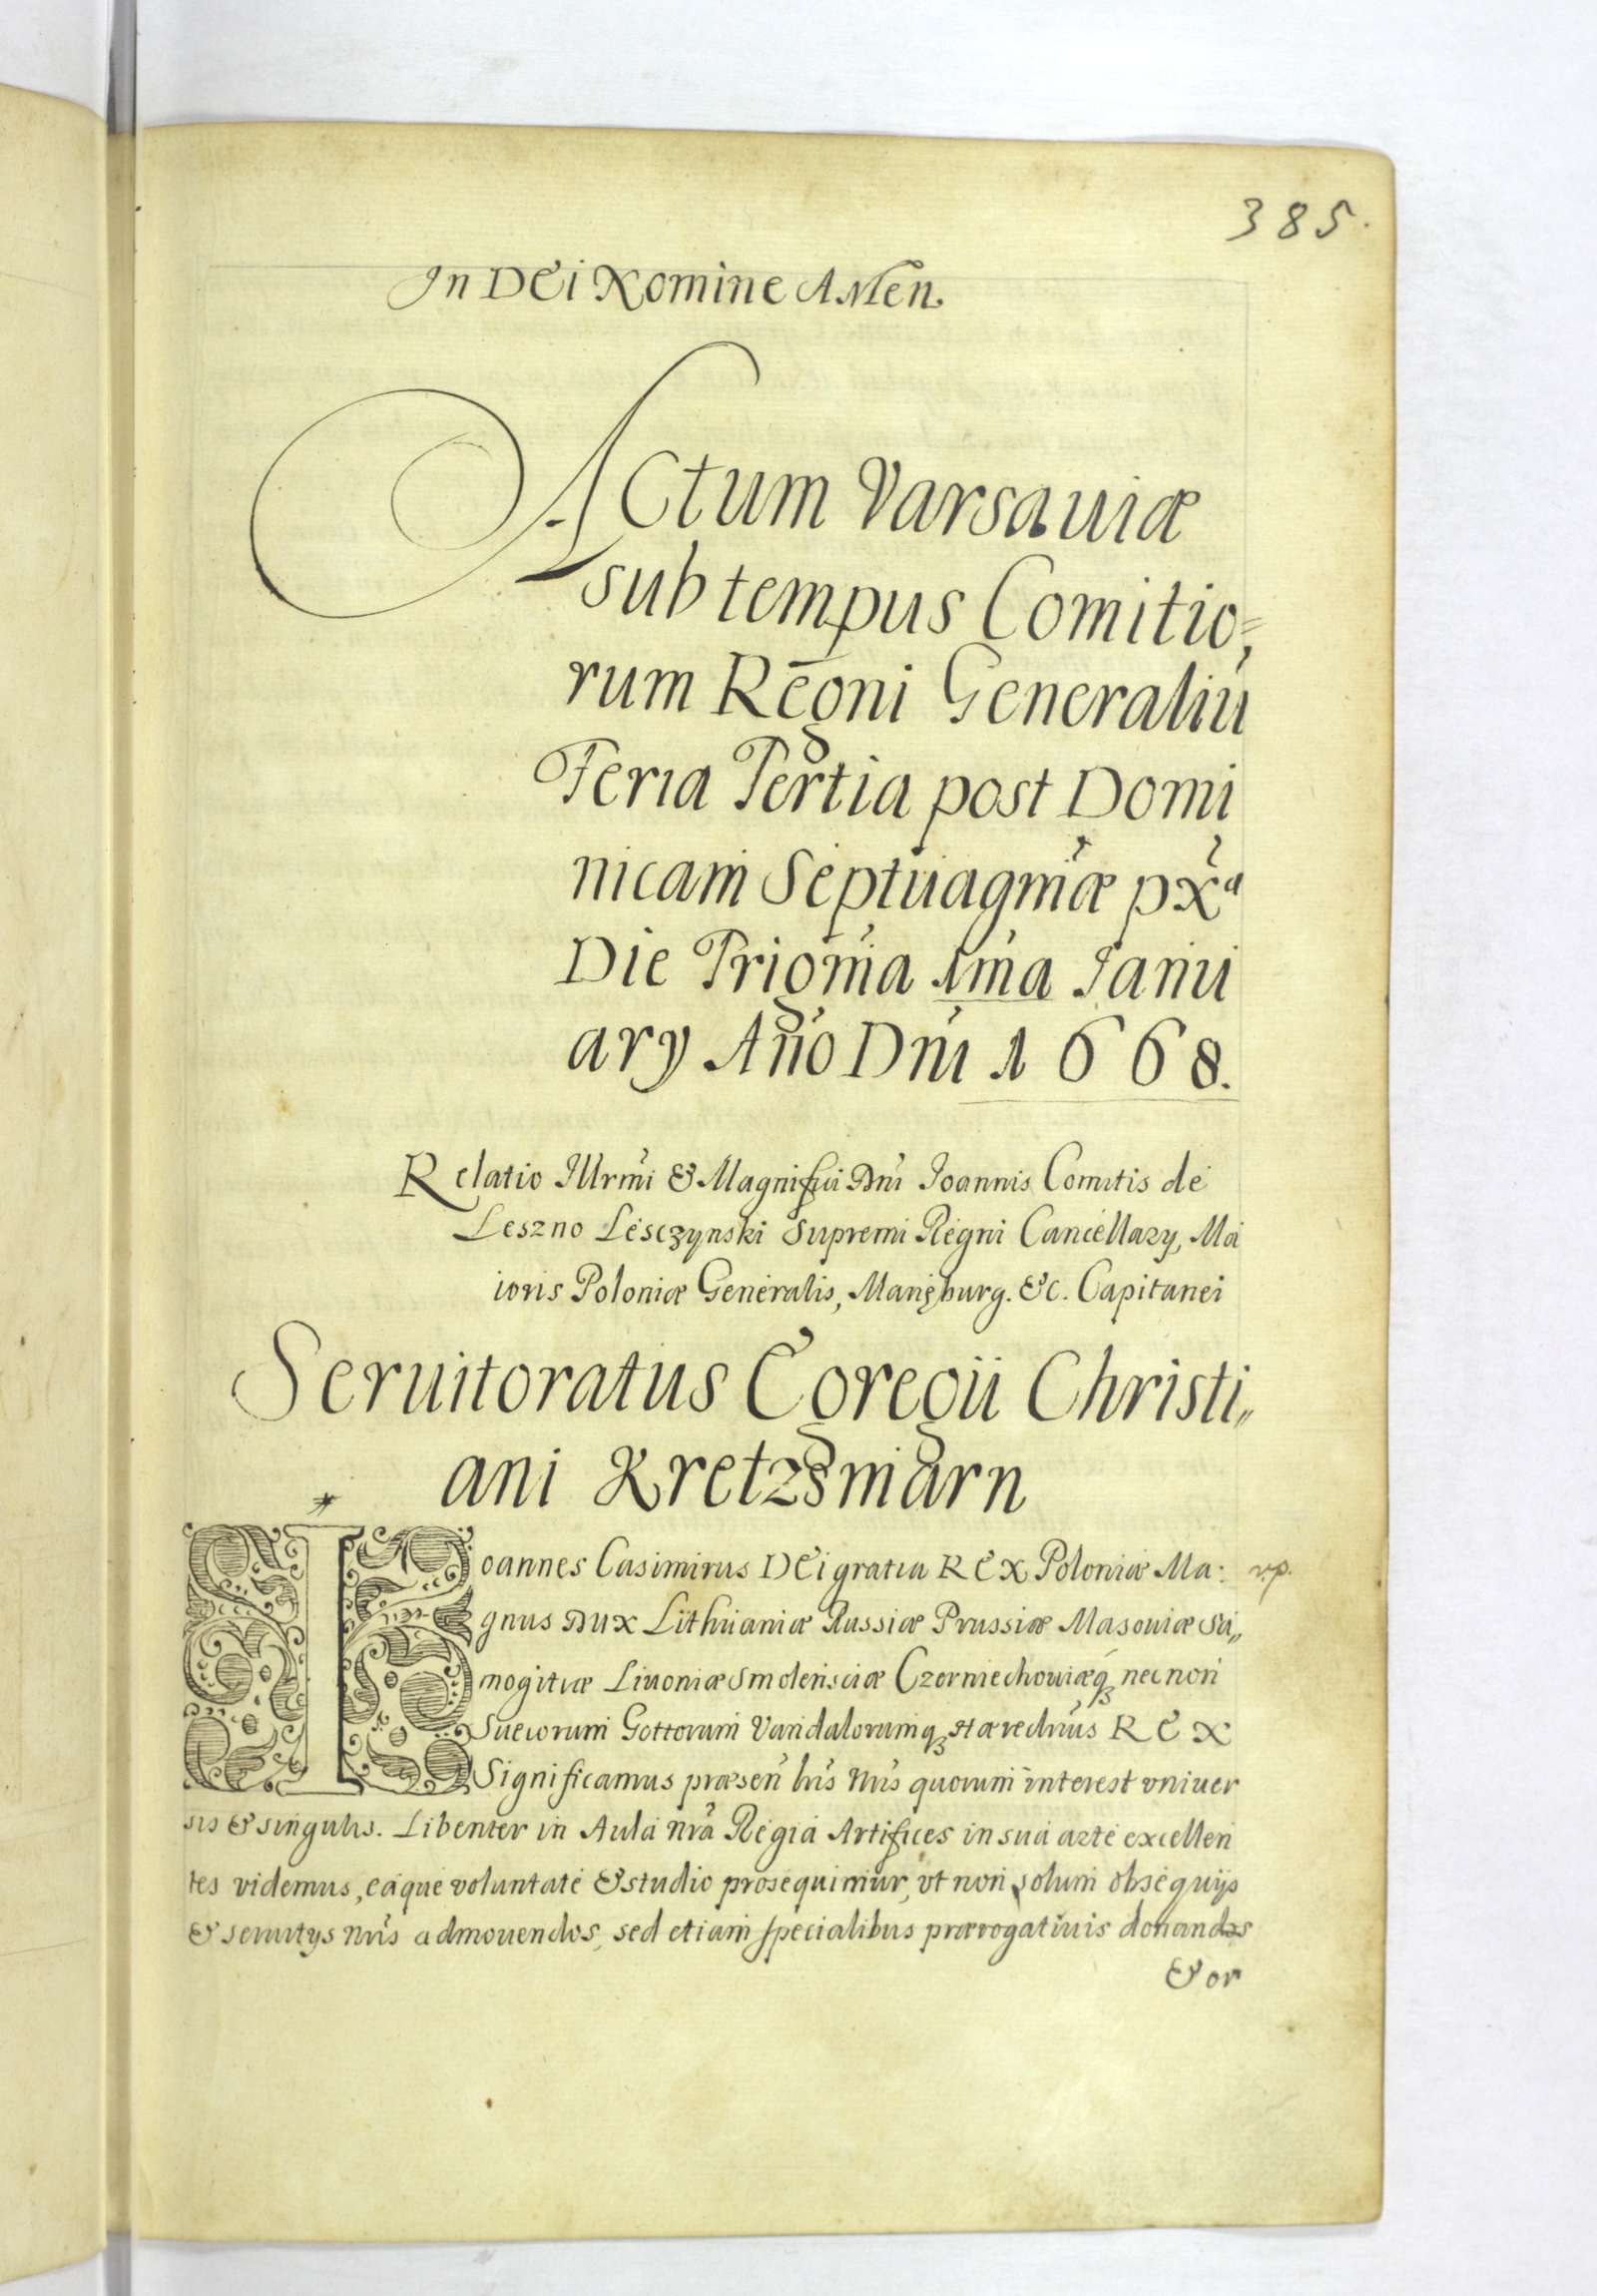 385.
In DEi Nomine AMen.
ACtum Varsauiæ
sub tempus Comitio=
rum Regni Generaliũ
Feria Tertia post Domi
nicam Septuagm̃æ px̃a
Die Trigom̃a 1ma Ianu
ary Año Dñi 1668.
Relatio Illrm̃i & Magnifici Dñi Ioannis Comitis de
Leszno Lesczynski Supremi Regni Cancellary, Ma
ioris Poloniæ Generalis, Marięburg. &c. Capitanei
Seruitoratus Coregii Christi„
ani Kretzsmarn
Ioannes Casimirus DEi gratia REX Poloniæ Ma: v.p.
gnus Dux Lithuaniæ Russiæ Prussiæ Masouiæ Sa„
mogitiæ Liuoniæ Smolensciæ Czerniechouiæq́ʒ necnon
Suecorum Gottorum Vandalorumqʒ Hæredrius REX
Significamus præsen̄ bus̃ Nr̃is quorum interest vniuer
sis & singulis. Libenter in Aula nr̃a Regia Artifices in sua arte excellen
tes videmus, eaque voluntate & studio prosequimur, vt non solum obsequijs
& seruitys nr̃is admouendos, sed etiam specialibus prærogatiuis donandos
& or